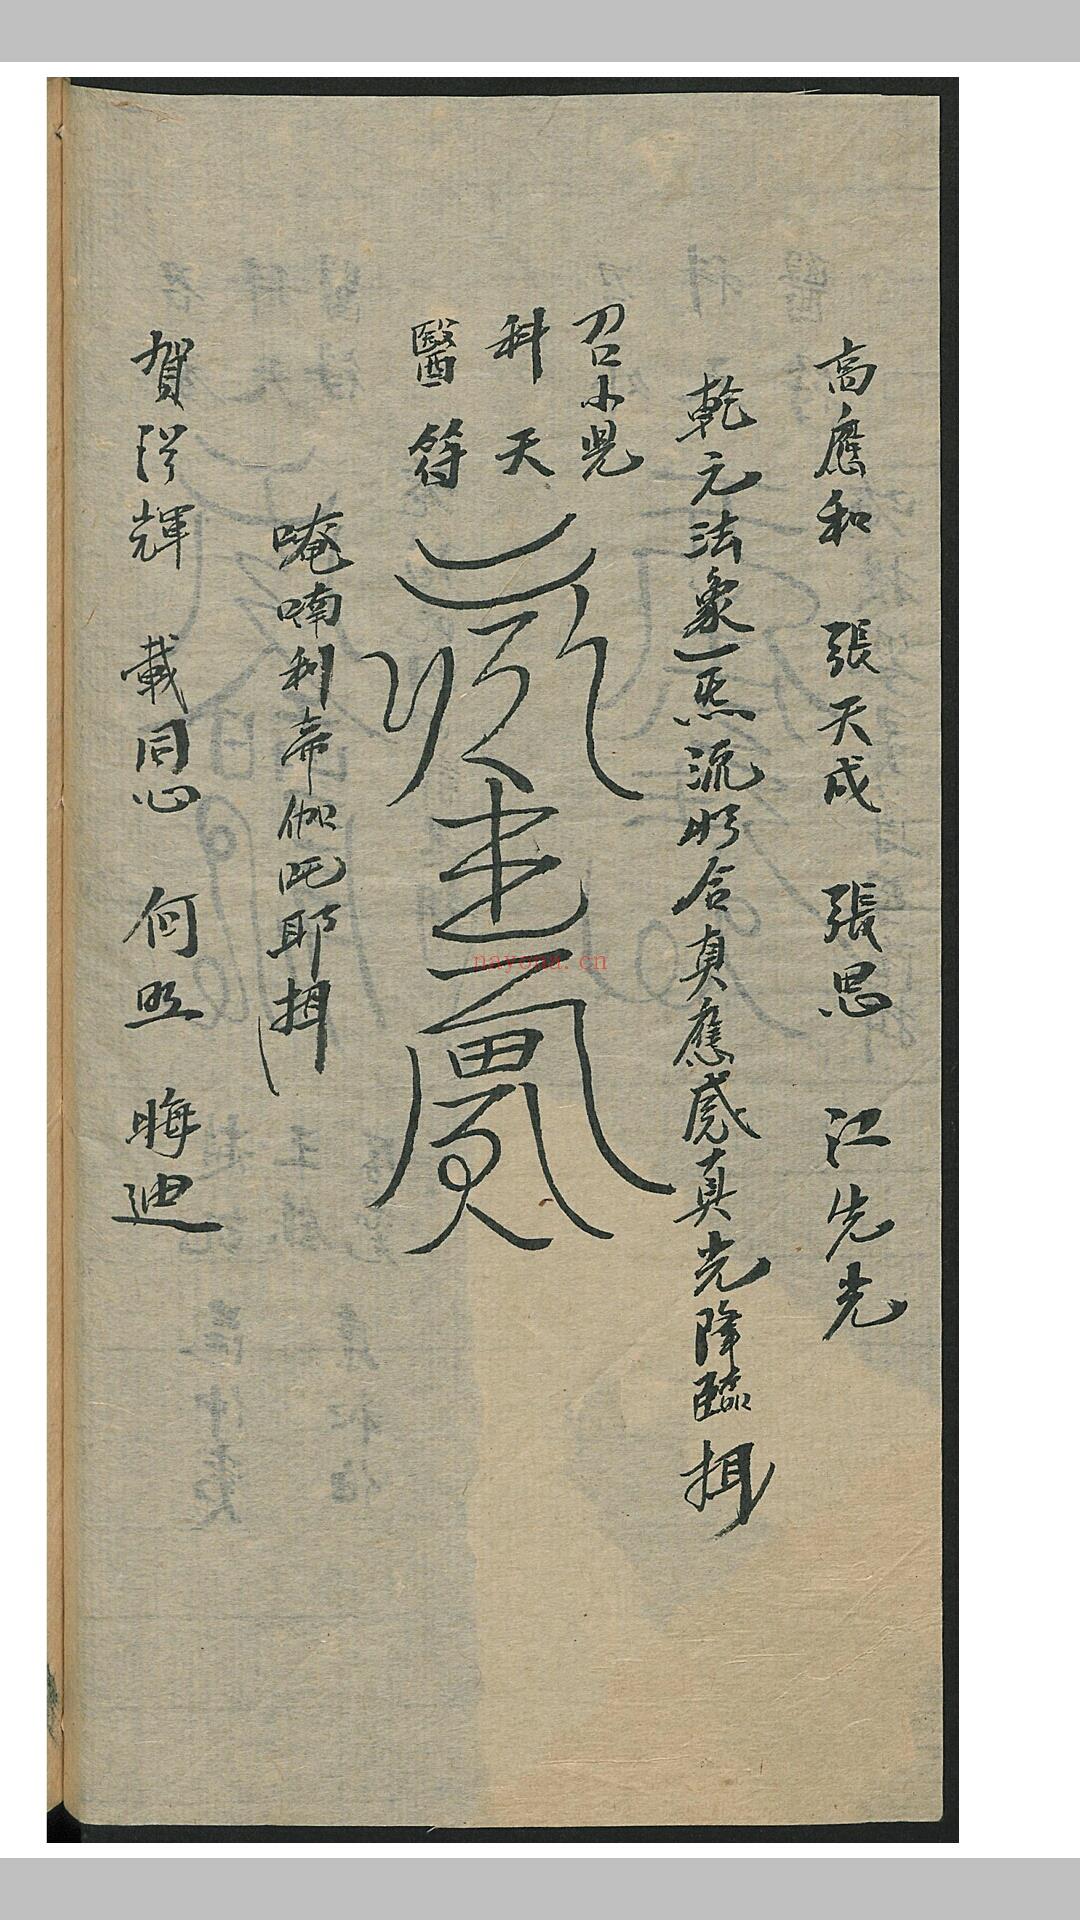 高應和 張天成 張思 江先光
乾元法象一炁流形合真應感真光降臨揖
召小児
科天
醫符
唵喃利帝伽吒耶揖
賀 輝 載同心 何 晦迪
nayona.cn